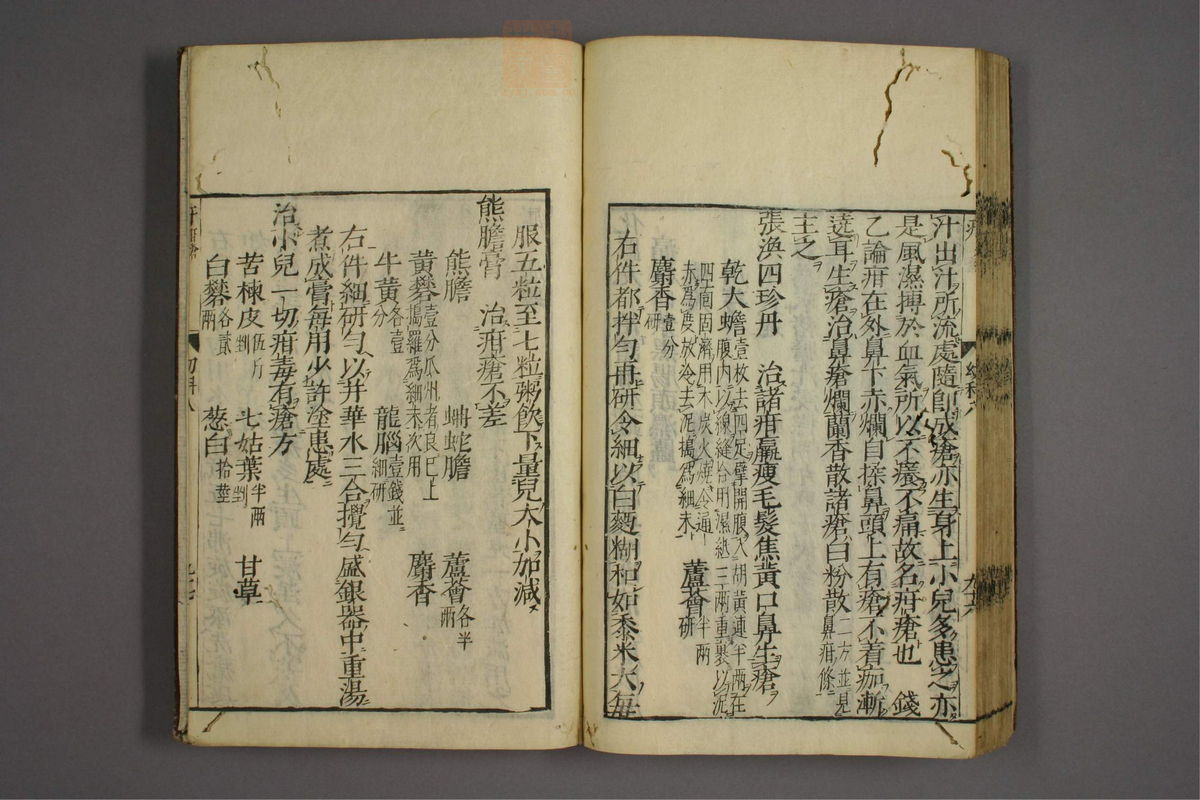 汁出汁所流處隨即成瘡亦生身上小兒多患之亦
是風濕搏於血氣所以不癢不痛故名疳瘡也　錢
乙論疳在外鼻下赤爛自揉鼻頭上有瘡不着痂漸
遶耳生瘡治鼻瘡爛蘭香散諸瘡白粉散二方並見鼻疳條
主之
張渙四珍丹　治諸疳羸瘦毛髮焦黃口鼻生瘡
乾大蟾壹枚去四足擘開腹入胡黃連半兩在
腹內以線縫合用濕紙三兩重裹以泥
四面固濟用木炭火燒令通
赤爲度放冷去泥搗爲細末　蘆薈半兩研
麝香壹分研
右件都拌勻再研令細以白麪糊和如黍米大每
幼科八
九十六
服五粒至七粒粥飮下量兒大小加減
熊膽膏　治疳瘡不差
熊膽　蚺蛇膽　蘆薈各半兩
黃礬壹分瓜州者良已上搗羅爲細末次用　麝香
牛黃各壹分　龍腦壹錢並細研
右件細研勻以井華水三合攪勻盛銀器中重湯
煮成膏每用少許塗患處
治小兒一切疳毒有瘡方
苦楝皮伍斤剉　七姑葉半兩剉　甘草
白礬各貳兩　葱白拾莖
幼科八
九十七